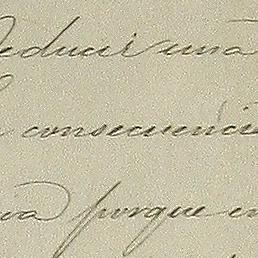 deducir una
consecuencia
porque en